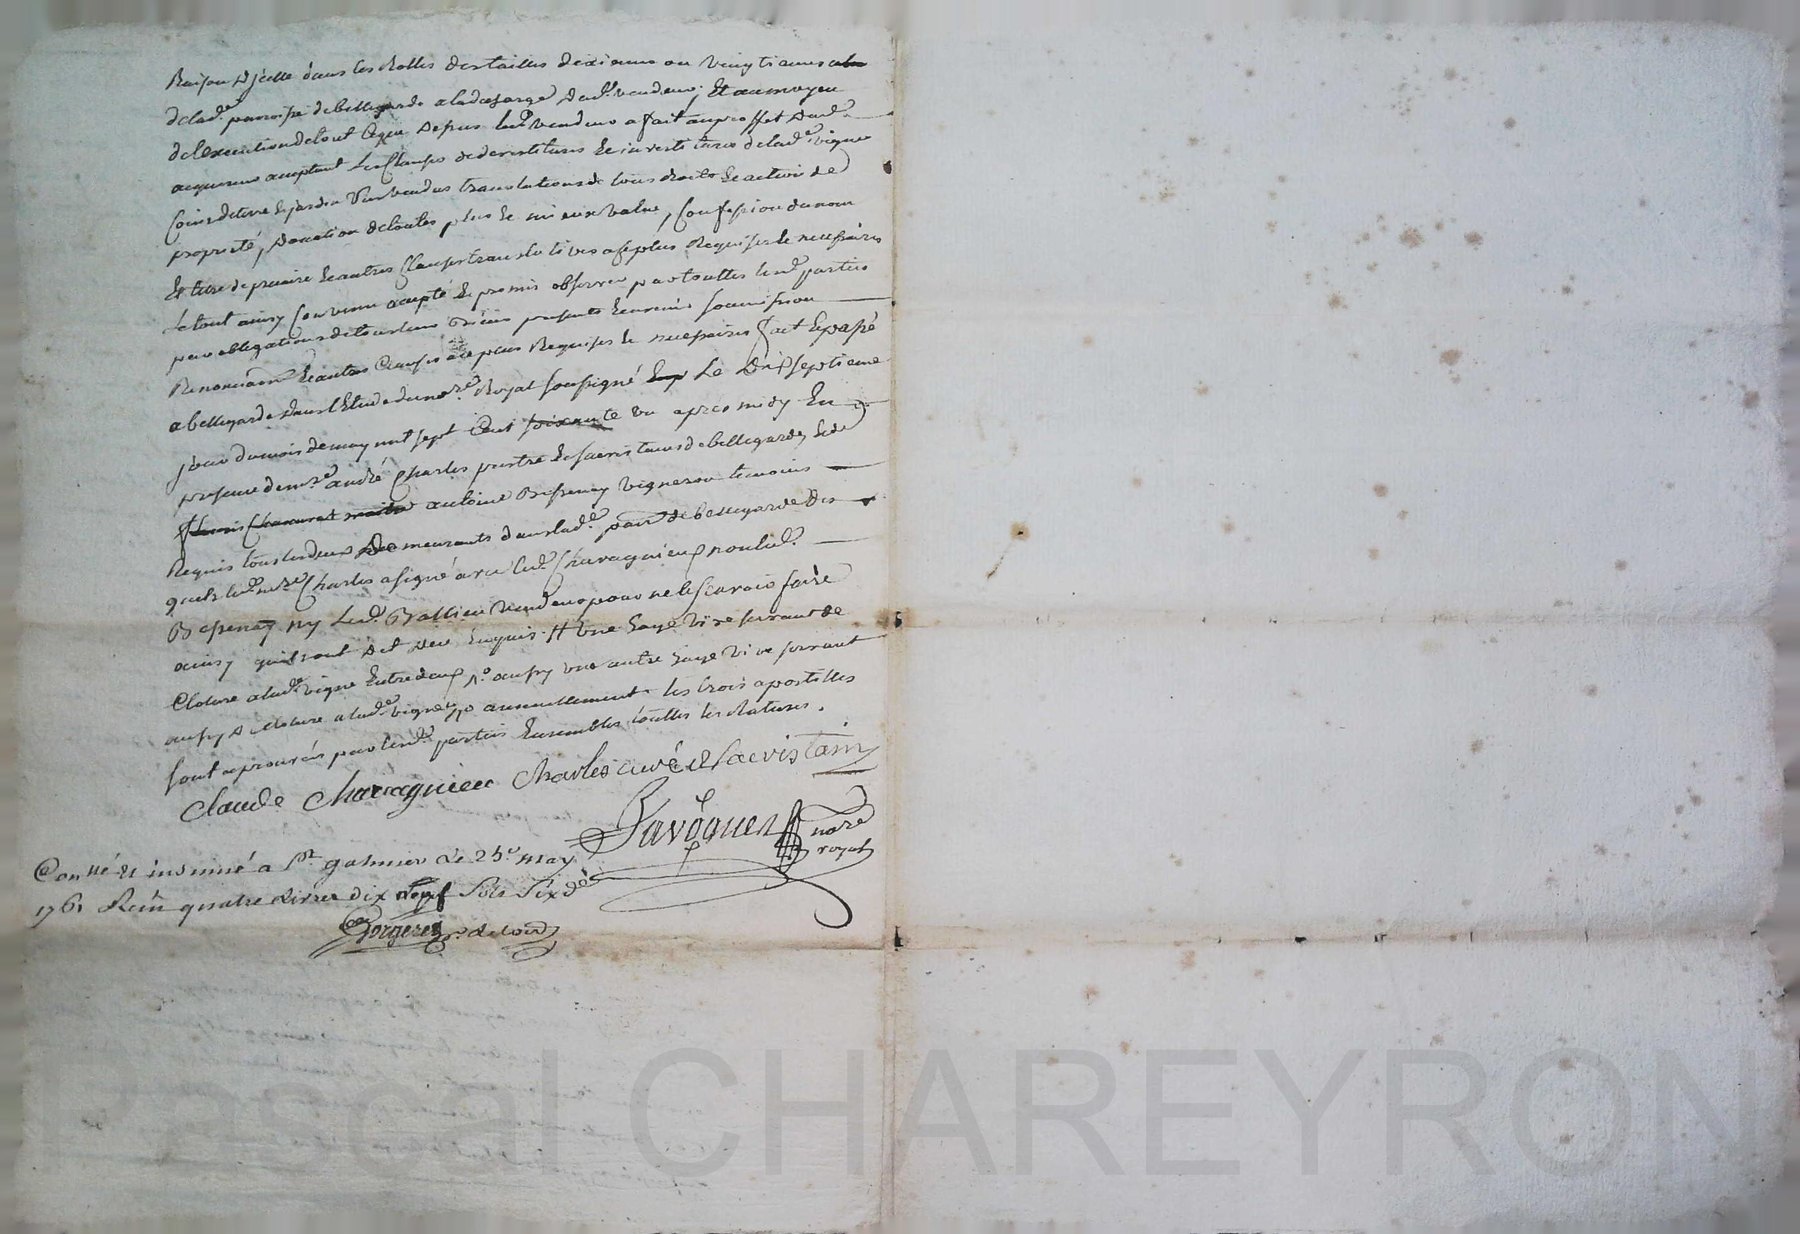 Raison d'jcelle dans les Rolles des tailles dixieme ou vingtiemes
delad.e parroisse de bellegarde a la decharge dud.t vendeur, Et au moyen
de lexecution de tout ce que dessus led.t vendeur a fait au proffit dud.
acquereur acceptant les clauses de devestitures & investitures delad.e vigne
Coin de terre & jardin sus vendus translations de tous droits & actions de
proprieté, donation de toutes plus & mieux value, Confession du nom
Et titre de precaire & autres clauses translatives a ce plus Requises & necessaires
Le tout ainsy convenu accepté & promis observer par touttes lesd. parties
par obligations de tous leurs biens presents & avenir soumission
Renonciaon & autres clauses a ce plus Requises & necessaires fait & passé
a bellegarde dans l'Etude du no.re Royal soussigné Le dixseptieme
jour du mois de may mil sept Cent soixante un apres midy En
presence de m.re andré Charles prestre & sacristain de bellegarde, & de
antoine Bessenay vigneron temoins
Requis tous les deux demeurants dans lad.e parr de bellegarde des
quels led. m.re Charles a signé avec led. Charagnieu non led.
Bessenay ny led. Ballieu vendeur pour ne le scavoir faire
ainsy quils ont dit deu Enquis. # une haye vive servant de
Cloture a lad.e vigne Entredeux, 1.o aussy une autre haye vive servant
aussy de cloture a lad.e vigne, annuellement. les trois apostilles
sont aprouvées par lesd. parties Ensembles touttes les Ratures.
Claude Charagnieu Charles curé & Sacristain
Javogues no.re
royal
Con.llé & insinué a S.t galmier le 25.e may
1761 Recu quatre Livres dix neuf sols six d.